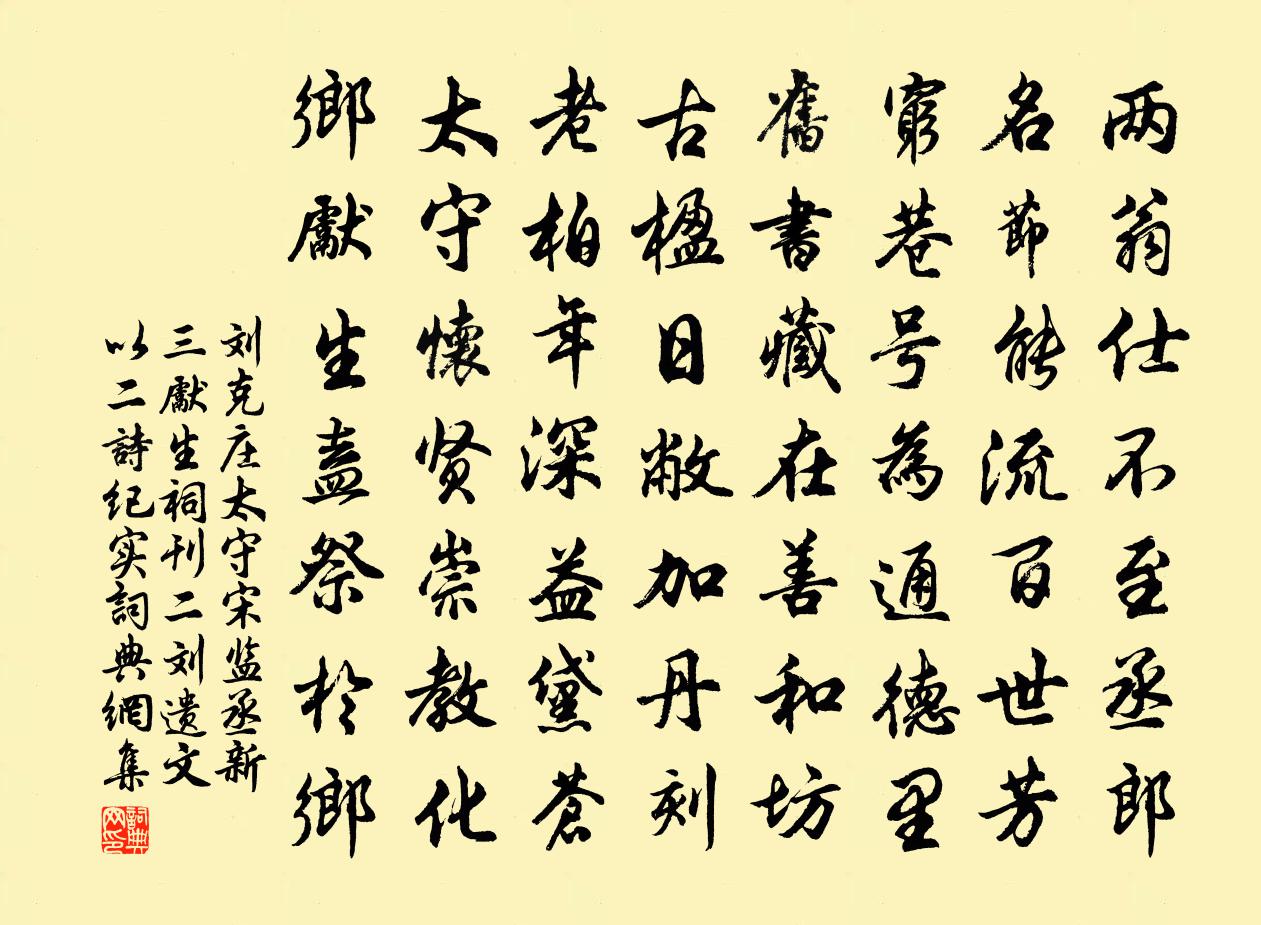 两翁仕不至丞郎
名節能流百世芳
窮巷号為通德里
舊書藏在善和坊
古楹日敝加丹刻
老柏年深益黛蒼
太守懷贤崇教化
鄉獻生盍祭於鄉
刘克庄太守宋监丞新
三獻生祠刊二刘遗文
以二詩纪实詞典網集
詞典网印